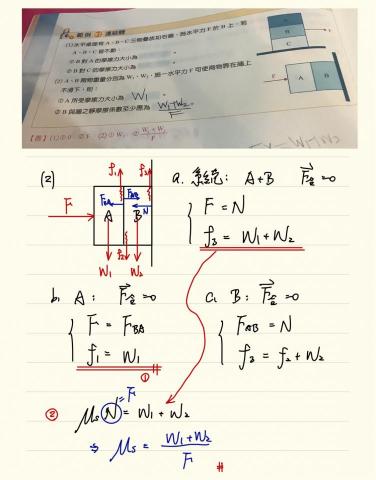 範例 2 連結體
(1)水平桌面有A、B、C三物疊放如右圖，施水平力F於B上，若
A、B、C皆不動：
①B對A的摩擦力大小為
②B對C的摩擦力大小為
(2)A、B兩物重量分別為W₁、W₂，施一水平力F可使兩物靠在牆上
不滑下，則：
①A所受摩擦力大小為 W₁
②B與牆之靜摩擦係數至少應為 W₁+W₂/F
【答】(1)①0 ②F (2)①W₁ ②W₁+W₂/F
B
C
F
A
B
(2)
F
A
B
F_BA
F_AB
N
f₁
f₂
f₃
W₁
W₂
a. 系統: A+B F合=0
F = N
f₃ = W₁+W₂
b. A: F合=0
F = F_BA
f₁ = W₁
①
c. B: F合=0
F_AB = N
f₃ = f₂+W₂
② μs N = W₁+W₂
=F
⇒ μs = W₁+W₂/F
#